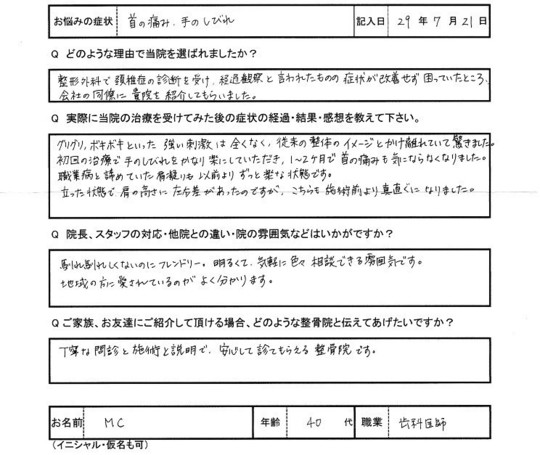 お悩みの症状 首の痛み、手のしびれ 記入日 29 年 7 月 21 日
Q どのような理由で当院を選ばれましたか?
整形外科で頚椎症の診断を受け、経過観察と言われたものの症状が改善せず困っていたところ、
会社の同僚に貴院を紹介してもらいました。
Q 実際に当院の治療を受けてみた後の症状の経過・結果・感想を教えて下さい。
グリグリ、ボキボキといった強い刺激は全くなく、従来の整体のイメージとかけ離れていて驚きました。
初回の治療で手のしびれをかなり楽にしていただき、1〜2ケ月で首の痛みも気にならなくなりました。
職業病と諦めていた肩凝りも以前よりずっと楽な状態です。
立った状態で肩の高さに左右差があったのですが、こちらも施術前より真直ぐになりました。
Q 院長、スタッフの対応・他院との違い・院の雰囲気などはいかがですか?
馴れ馴れしくないのにフレンドリー。明るくて、気軽に色々相談できる雰囲気です。
地域の方に愛されているのがよく分かります。
Q ご家族、お友達にご紹介して頂ける場合、どのような整骨院と伝えてあげたいですか?
丁寧な問診と施術と説明で、安心して診てもらえる整骨院です。
お名前 MC 年齢 40 代 職業 歯科医師
(イニシャル・仮名も可)